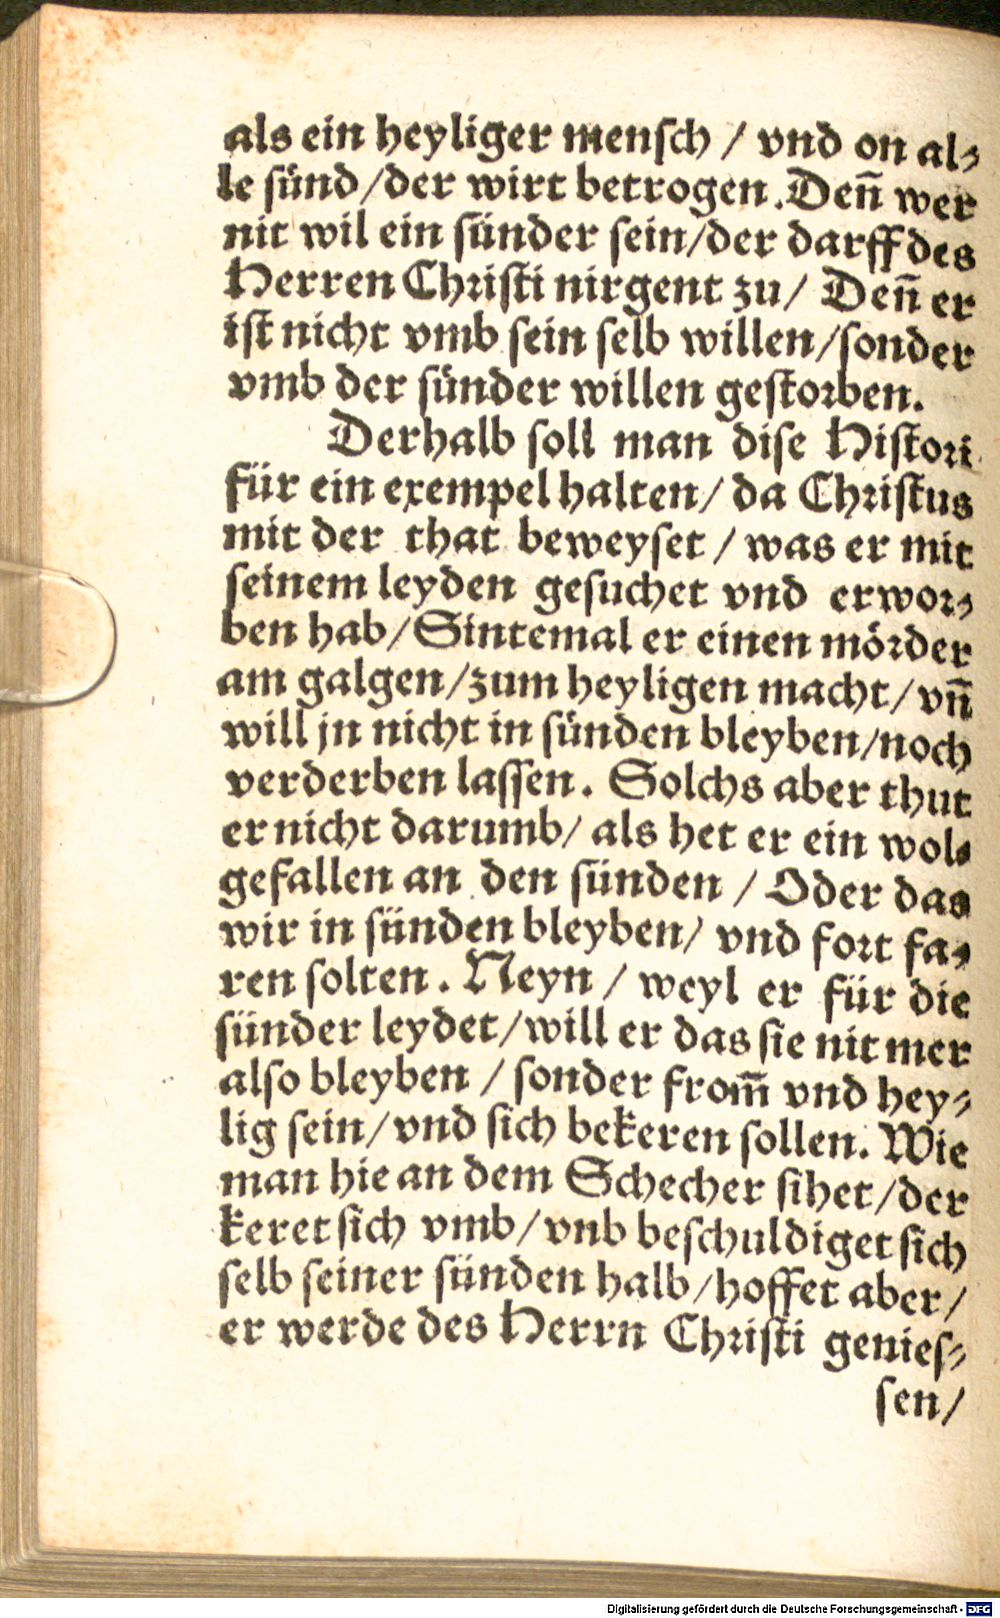 als ein heyliger mensch / vnd on al⸗
le sünd/der wirt betrogen. Deñ wer
nit wil ein sünder sein/der darff des
Herren Christi nirgent zu/ Deñ er
ist nicht vmb sein selb willen/sonder
vmb der sünder willen gestorben.
Derhalb soll man dise Histori
für ein exempel halten/ da Christus
mit der that beweyset / was er mit
seinem leyden gesuchet vnd erwor⸗
ben hab/Sintemal er einen mörder
am galgen/zum heyligen macht/ vñ
will jn nicht in sünden bleyben/noch
verderben lassen. Solchs aber thut
er nicht darumb/ als het er ein wol⸗
gefallen an den sünden / Oder das
wir in sünden bleyben/ vnd fort fa⸗
ren solten. Neyn / weyl er für die
sünder leydet/will er das sie nit mer
also bleyben / sonder from̃ vnd hey⸗
lig sein/vnd sich bekeren sollen. Wie
man hie an dem Schecher sihet/der
keret sich vmb/vnb beschuldiget sich
selb seiner sünden halb/hoffet aber/
er werde des Herrn Christi genies⸗
sen/
Digitalisierung gefördert durch die Deutsche Forschungsgemeinschaft - DFG